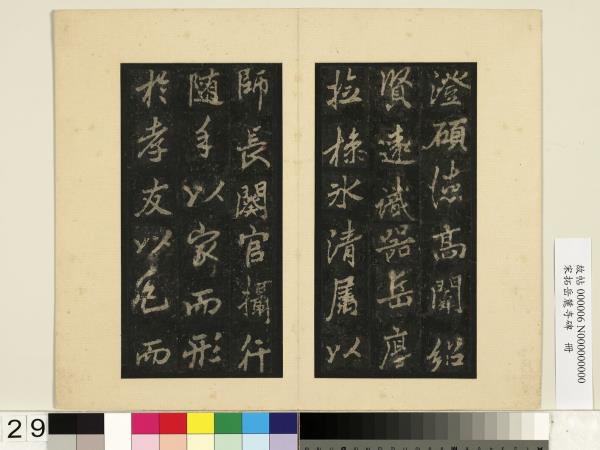 澄碩德高闡紹
賢遠識器岳厚
捡操冰清属以
師長闕官攝行
随手以家而形
於孝友以色而
故帖 000006 N000000000
宋拓岳麓寺碑 冊
29